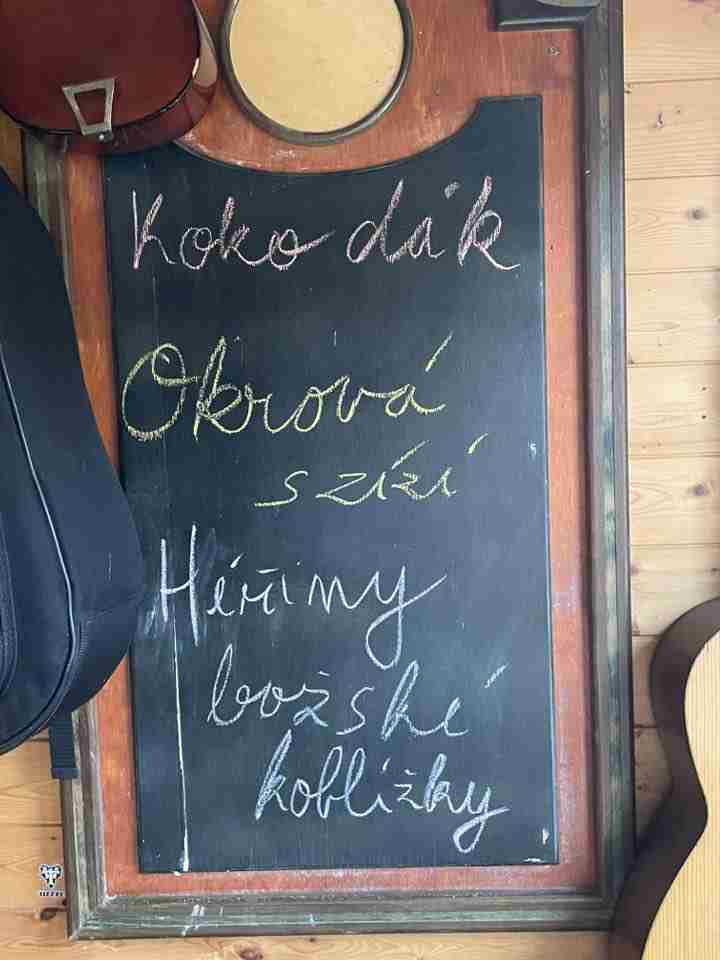 Koko dák
Okrová
szízí
Hériny
božské
koblížky